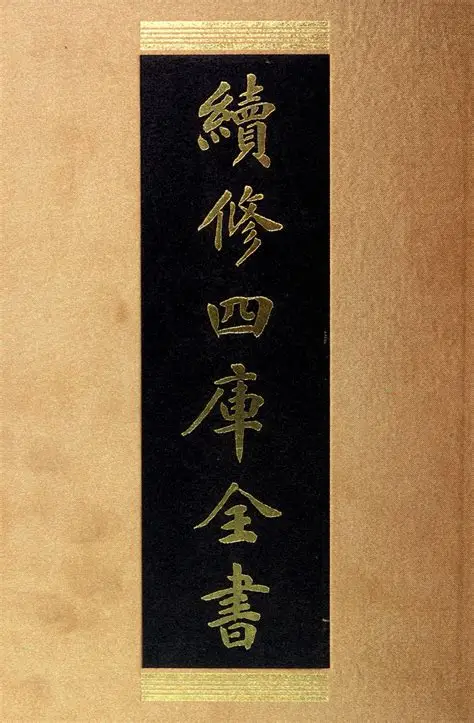 續修四庫全書